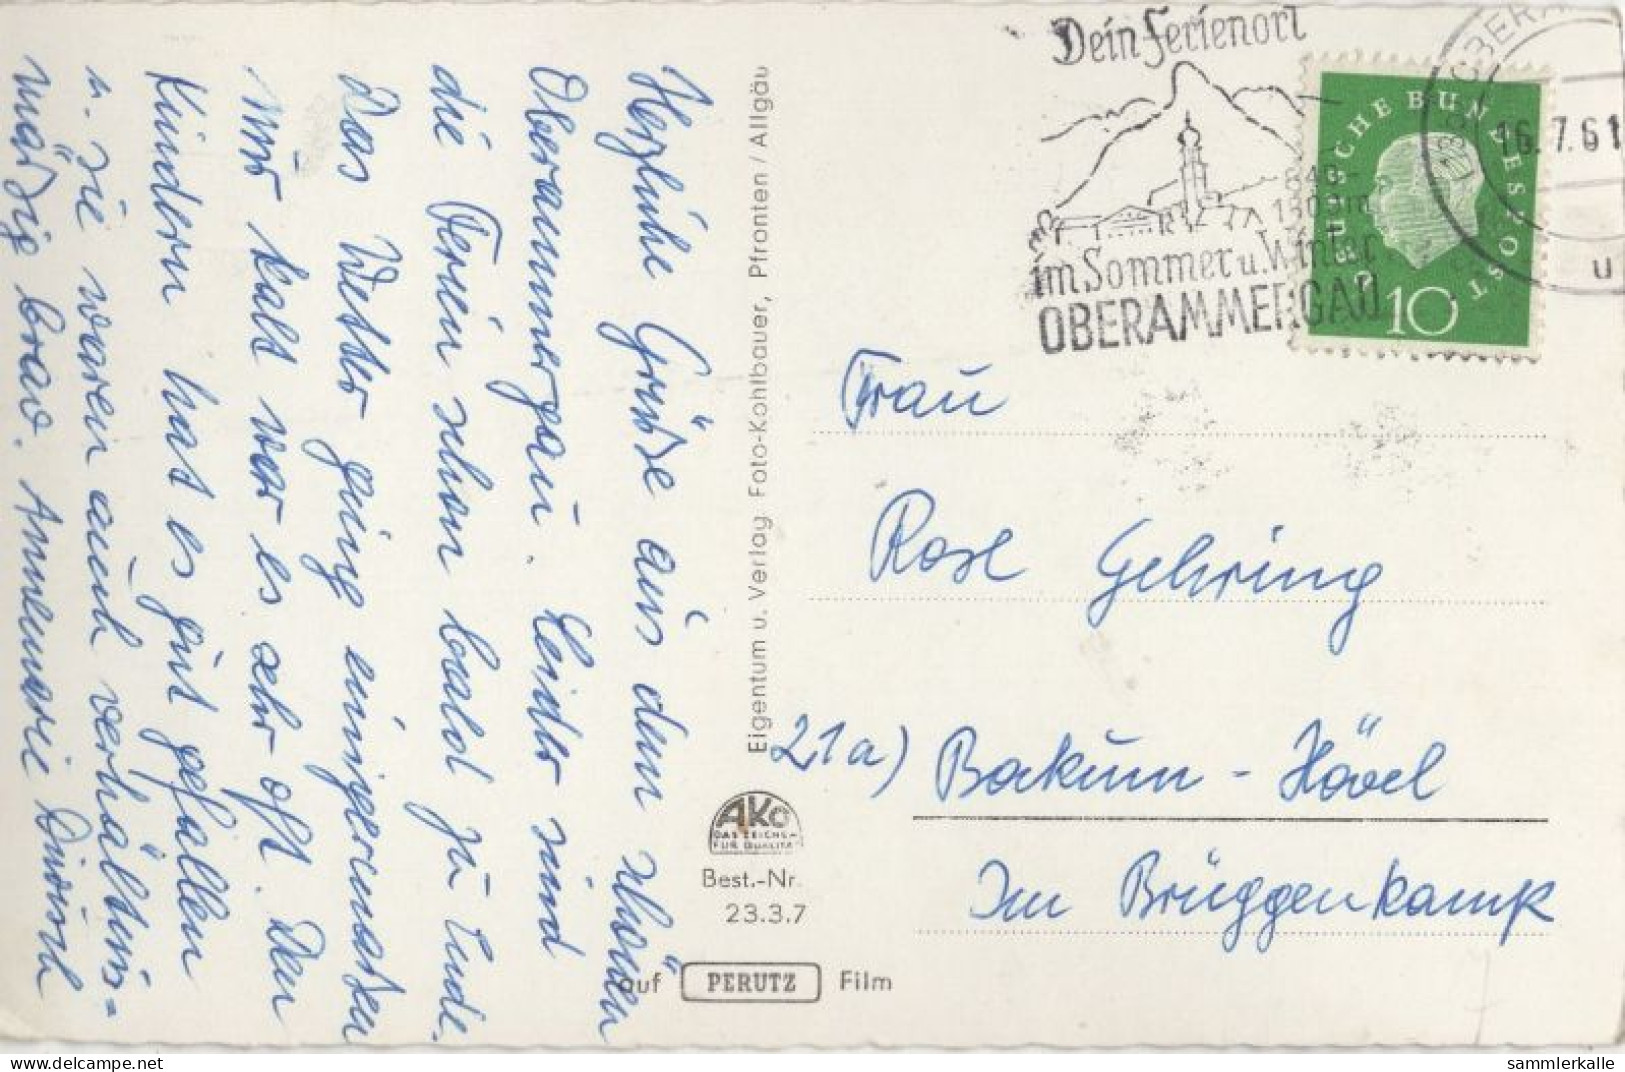 Herzliche Grüße aus dem schönen
Oberammergau. Leider sind
die Ferien schon bald zu Ende.
Das Wetter ging einigermaßen
nur kalt war es sehr oft. Den
Kindern hat es gut gefallen
u. sie waren auch verhältnis=
mäßig brav. Annemarie
Eigentum u. Verlag Foto-Kohlbauer, Pfronten / Allgäu
AKO
DAS ZEICHEN
FÜR QUALITÄT
Best.-Nr.
23.3.7
auf PERUTZ Film
Dein Ferienort
840-
im Sommer u. Winter
OBERAMMERGAU
16.7.61
u
DEUTSCHE BUNDESPOST
10
Frau
Rose Gehring
21a) Bakum-Hövel
Im Brüggenkamp
sammlerkalle